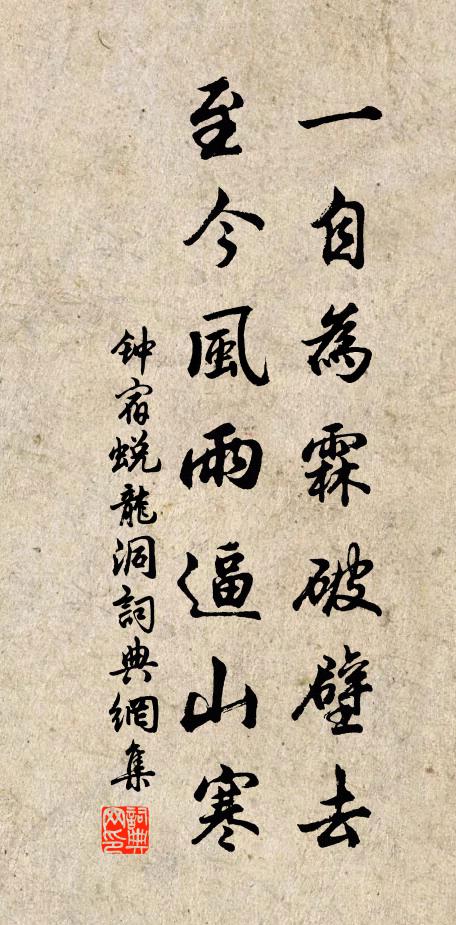 一自為霖破壁去
至今風雨逼山寒
钟宿蜕龍洞詞典網集
詞典
网印